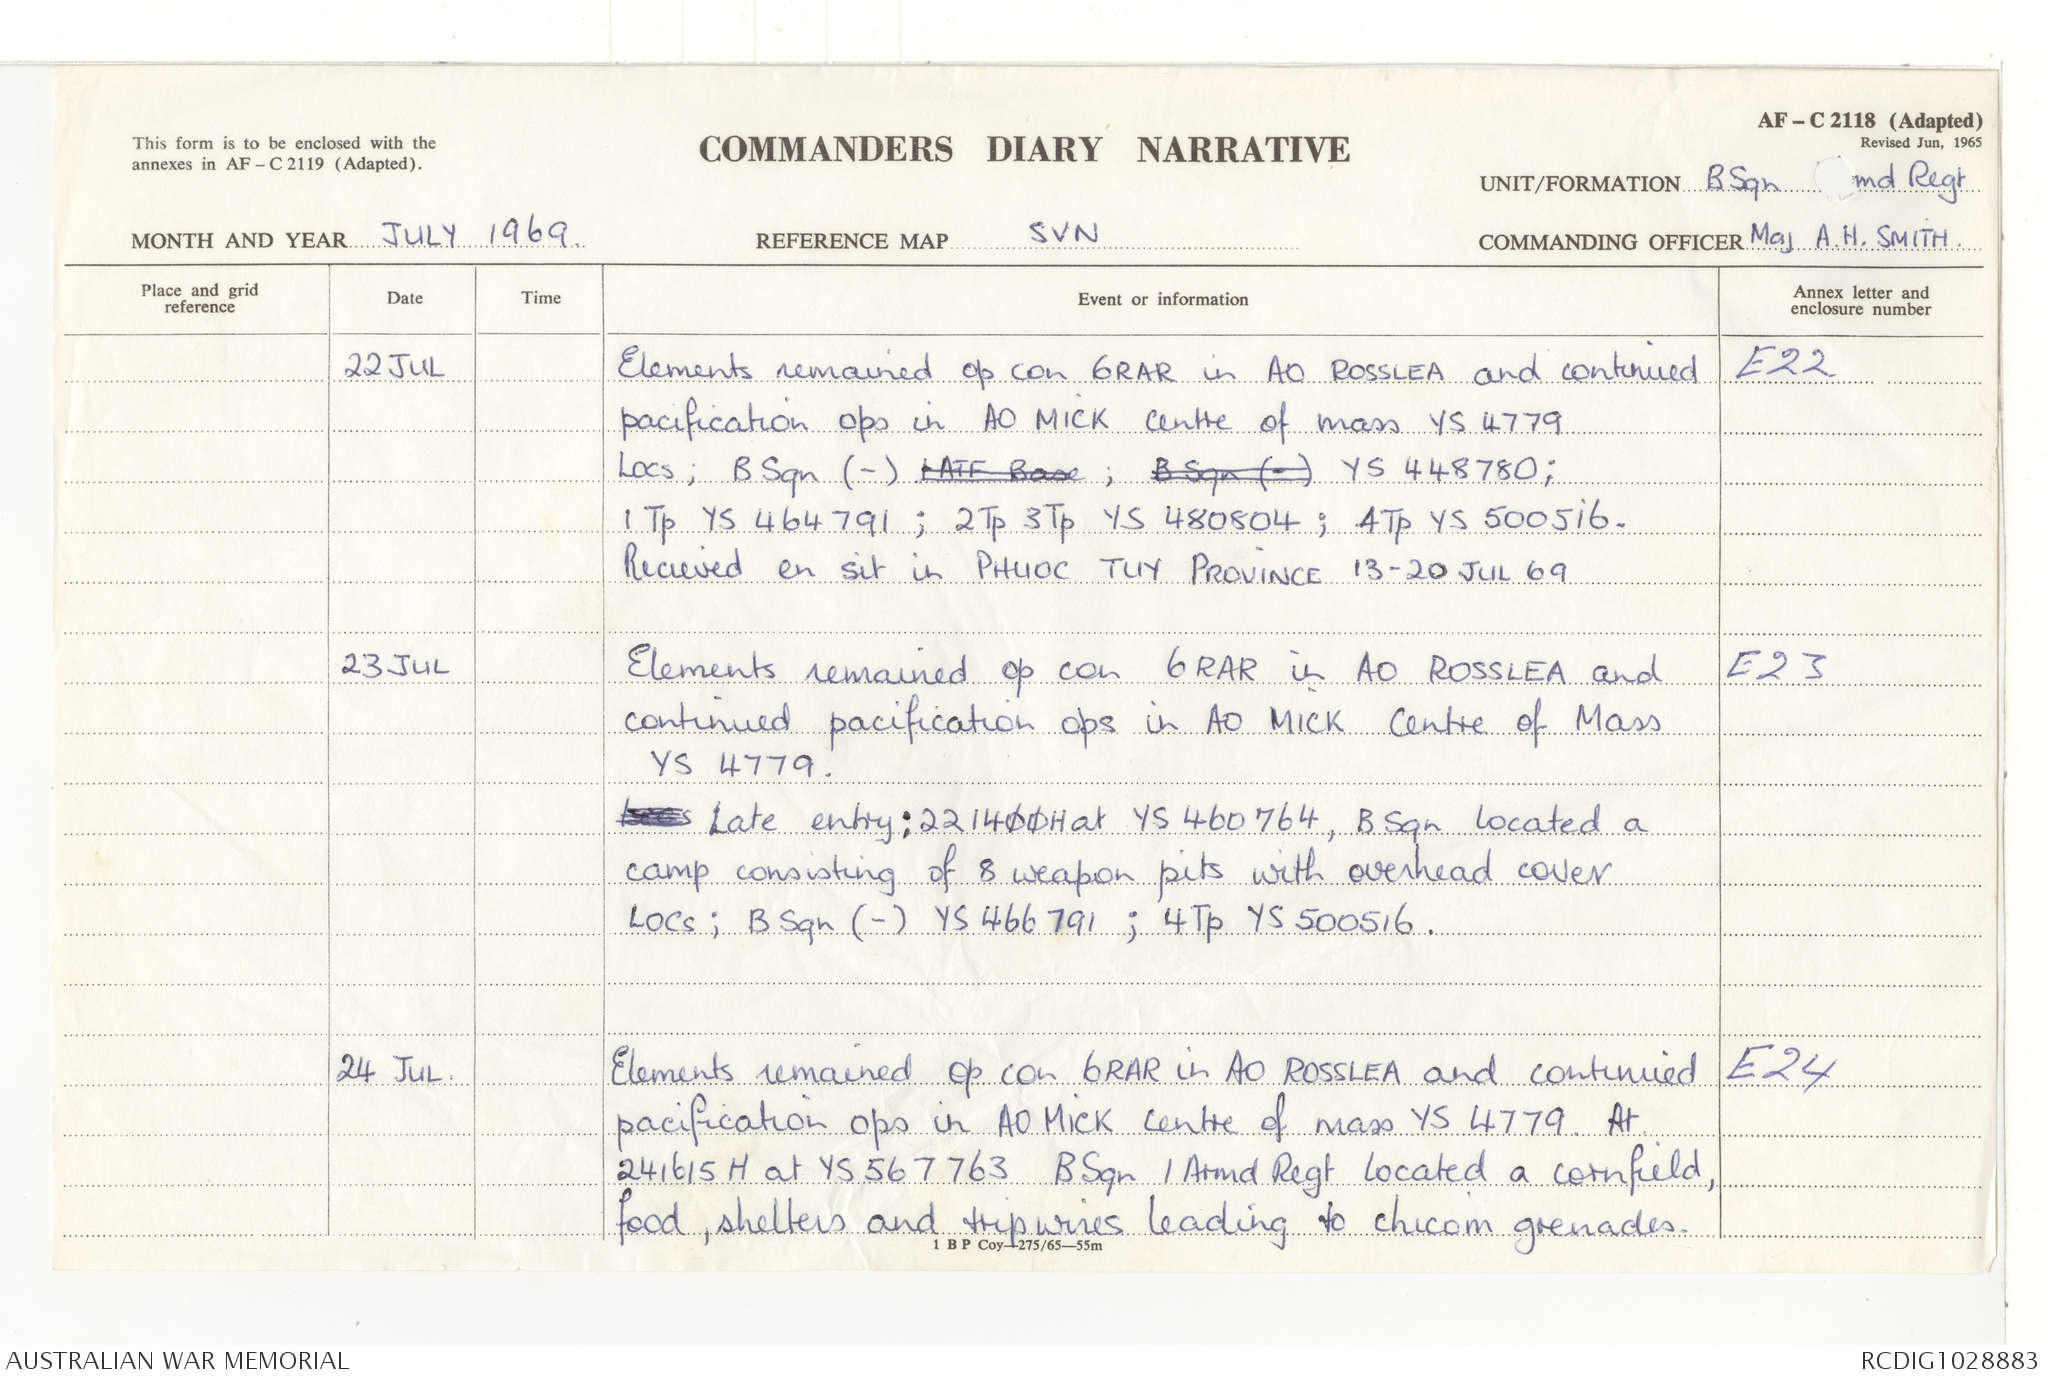 This form is to be enclosed with the
annexes in AF – C 2119 (Adapted).
COMMANDERS DIARY NARRATIVE
AF – C 2118 (Adapted)
Revised Jun, 1965
UNIT/FORMATION B Sqn md Regt
MONTH AND YEAR JULY 1969.
REFERENCE MAP SVN
COMMANDING OFFICER Maj A.H. SMITH.
Place and grid
reference
Date
Time
Event or information
Annex letter and
enclosure number
22 JUL Elements remained op con 6RAR in AO ROSSLEA and continued E22
pacification ops in AO MICK centre of mass YS 4779
Locs; B Sqn (-) 1ATF Base ; B Sqn (-) YS 448780;
1 Tp YS 464791 ; 2Tp 3Tp YS 480804 ; 4Tp YS 500516.
Recieved en sit in PHUOC TUY PROVINCE 13-20 JUL 69
23 JUL Elements remained op con 6 RAR in AO ROSSLEA and E23
continued pacification ops in AO MICK Centre of Mass
YS 4779.
Locs Late entry; 221400H at YS 460764, B Sqn located a
camp consisting of 8 weapon pits with overhead cover
LOCs; B Sqn (-) YS 466791 ; 4Tp YS 500516.
24 JUL. Elements remained op con 6RAR in AO ROSSLEA and continued E24
pacification ops in AO MICK centre of mass YS 4779. At
241615 H at YS 567763 B Sqn 1 Armd Regt located a cornfield,
food, shelters and tripwires leading to chicom grenades.
1 B P Coy—275/65—55m
AUSTRALIAN WAR MEMORIAL
RCDIG1028883